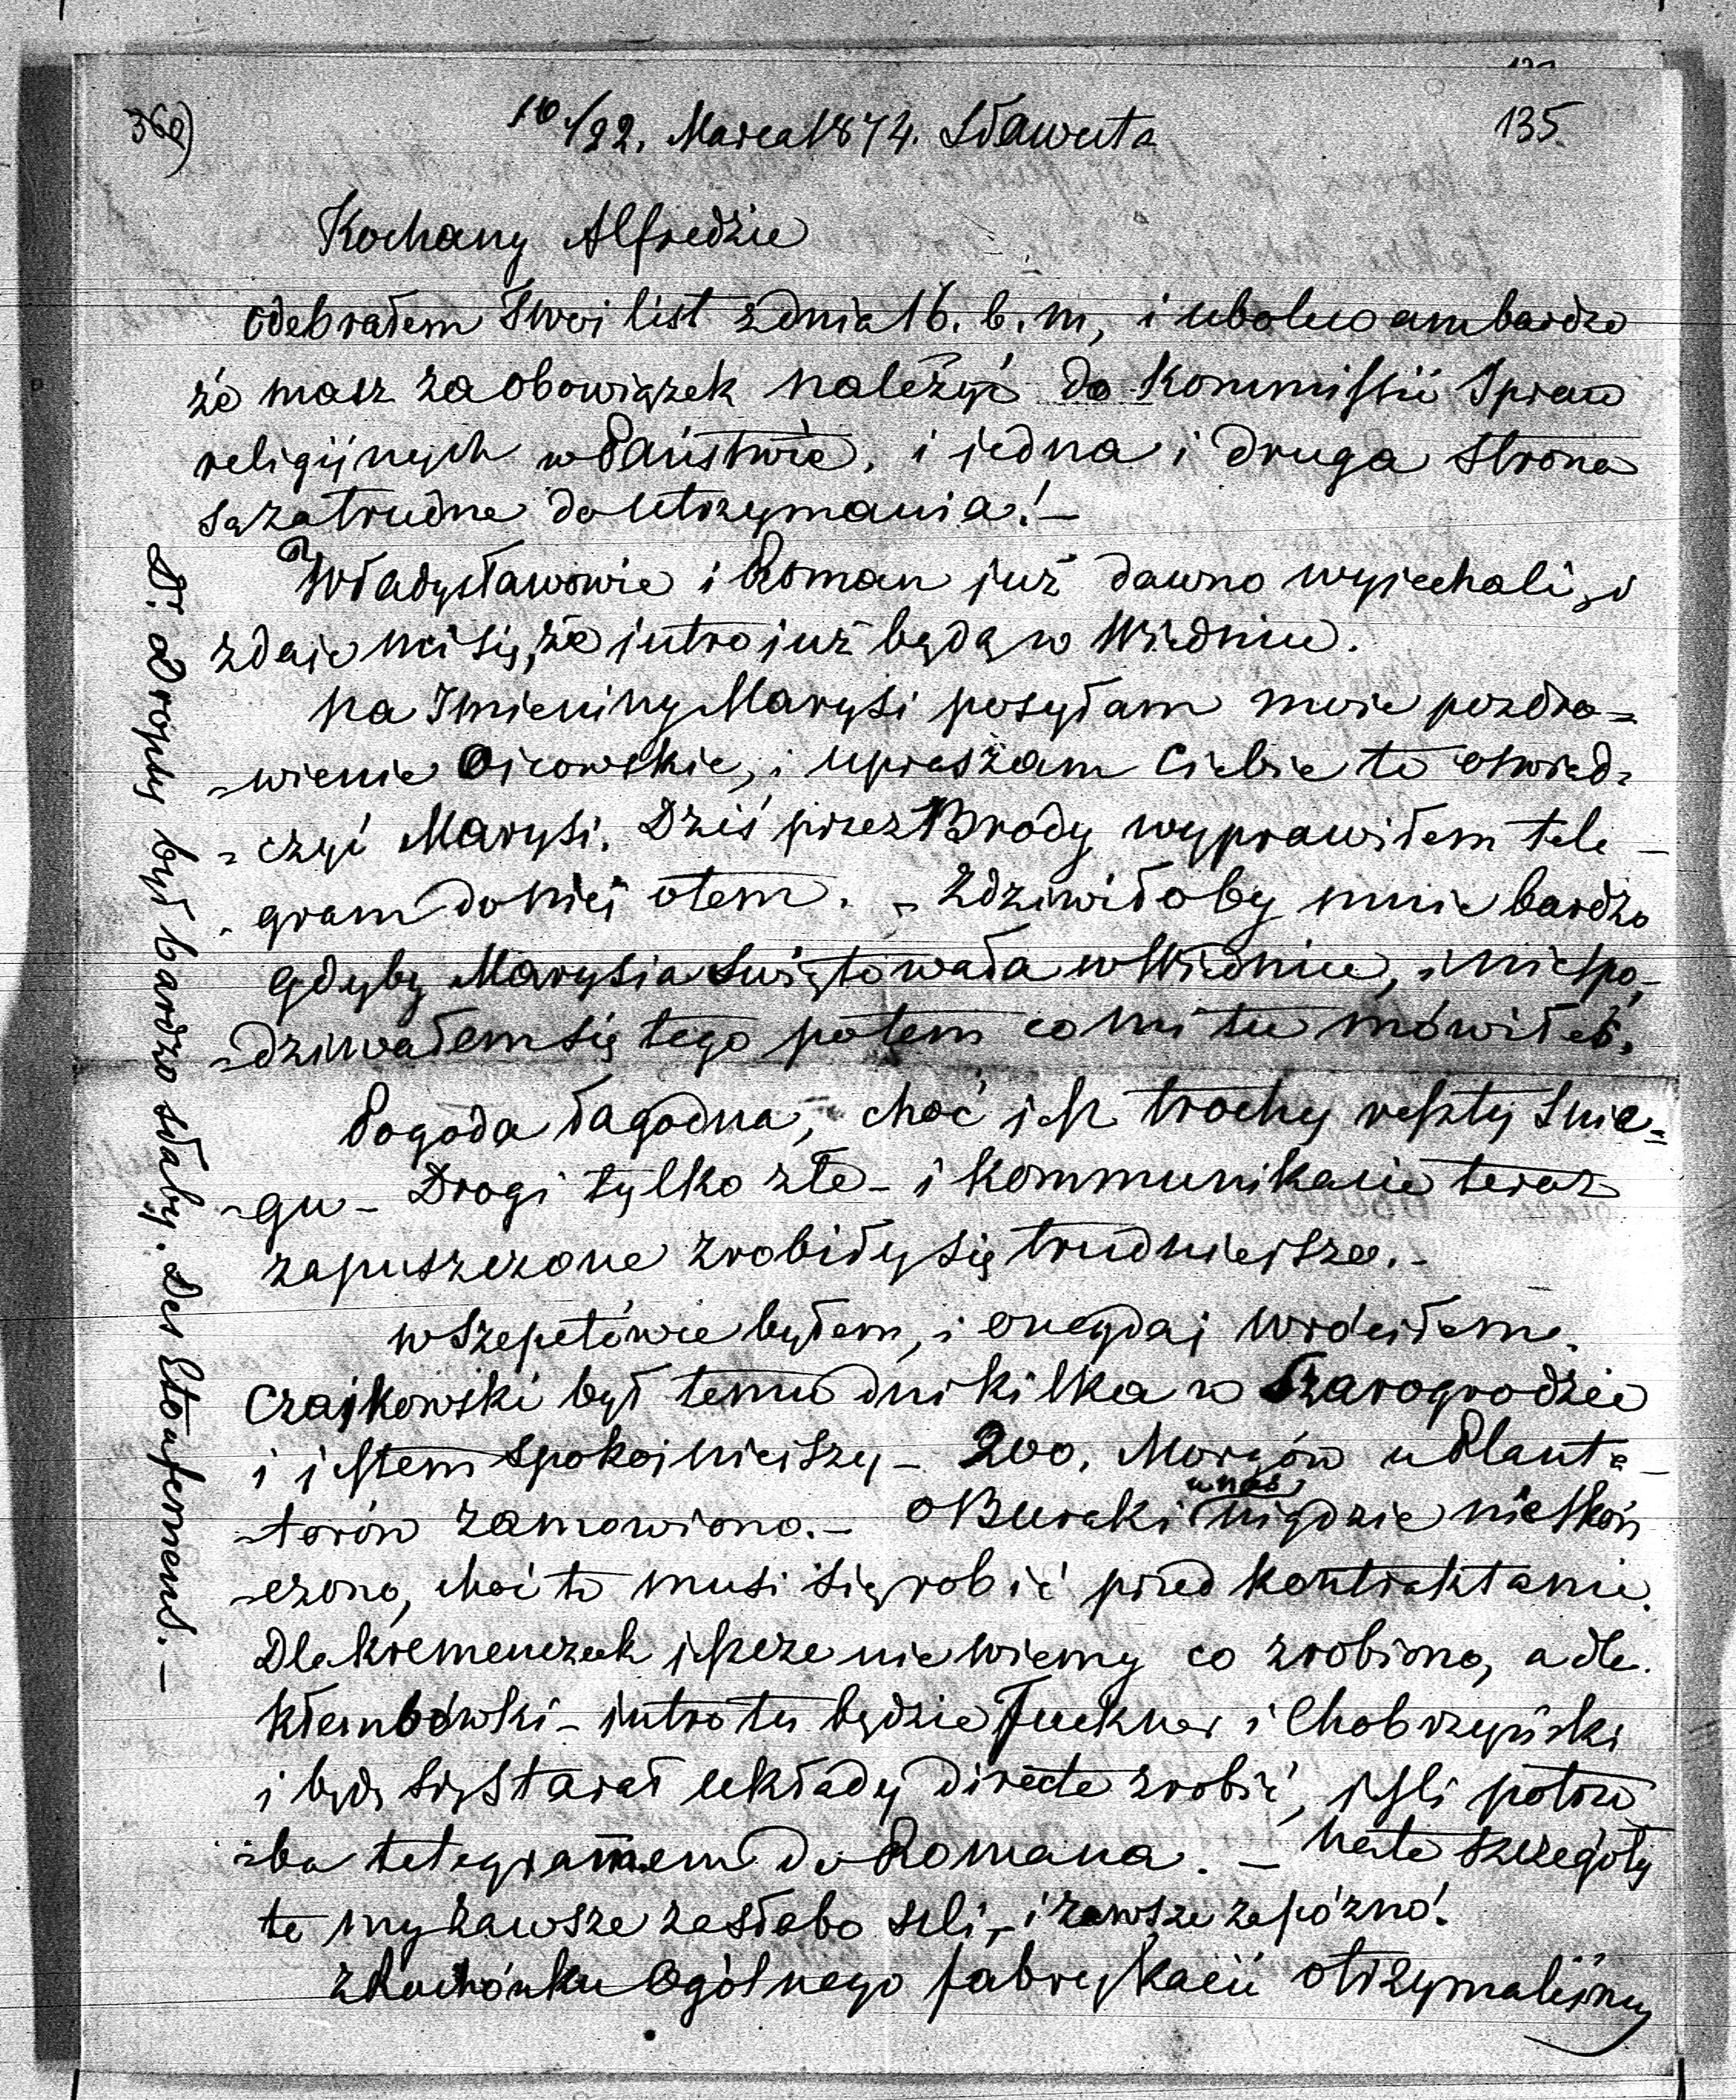 36a)
10./22. Marca 1874. Sławuta
135.
Kochany Alfredzie
odebrałem Twoi list z dnia 16. b. m, i ubolewam bardzo
że masz za obowiązek należyć do Kommissii Spraw
religijnych w Państwie, i jedna i druga strona
są za trudne do utrzymania! –
Władysławowie i Roman już dawno wyjechali, i
zdaje mi się, że jutro już będą w Wiedniu.
Na Imieniny Marysi posyłam moie pozdro=
-wienie Oicowskie, i upraszam Ciebie to oswiad=
=czyć Marysi. Dziś przez Brody wyprawiłem tele-
-gram do niei otem. – Zdziwiłoby mnie bardzo
gdyby Marysia świętowała w Wiedniu, i niespo-
-dziwałem się tego potem co mi tu mówiłeś.
Pogoda łagodna, choć jest trochy reszty śnie=
-gu – Drogi tylko złe – i kommunikacie teraz
zapuszczone zrobiły się trudnieisze. –
w Szepetówce byłem, i onegdaj wróciłem.
Czajkowski był temu dni kilka w Szarogrodzie
i jestem spokoinieiszy – 200. Morgów u Planta-
-torów zamowiono. – O Buraki u nas nigdzie nieskoń
-czono, choć to musi się robić przed kontraktami.
Dla Kremenczuk jeszcze nie wiemy co zrobiono, a dla
Kłembówki – jutro tu będzie Fuckner i Chobrzyński
i będę się starał układy directe zrobić, jeśli potrze
=ba telegramem do Romana. – Na te szczegóły
te my zawsze zasłabo szli, – i zawsze zapóźno!
z Rachónku Ogólnego fabrykacii otrzymaliśmy
Dr. Dropsy był bardzo słaby. Der Stoufernens. –